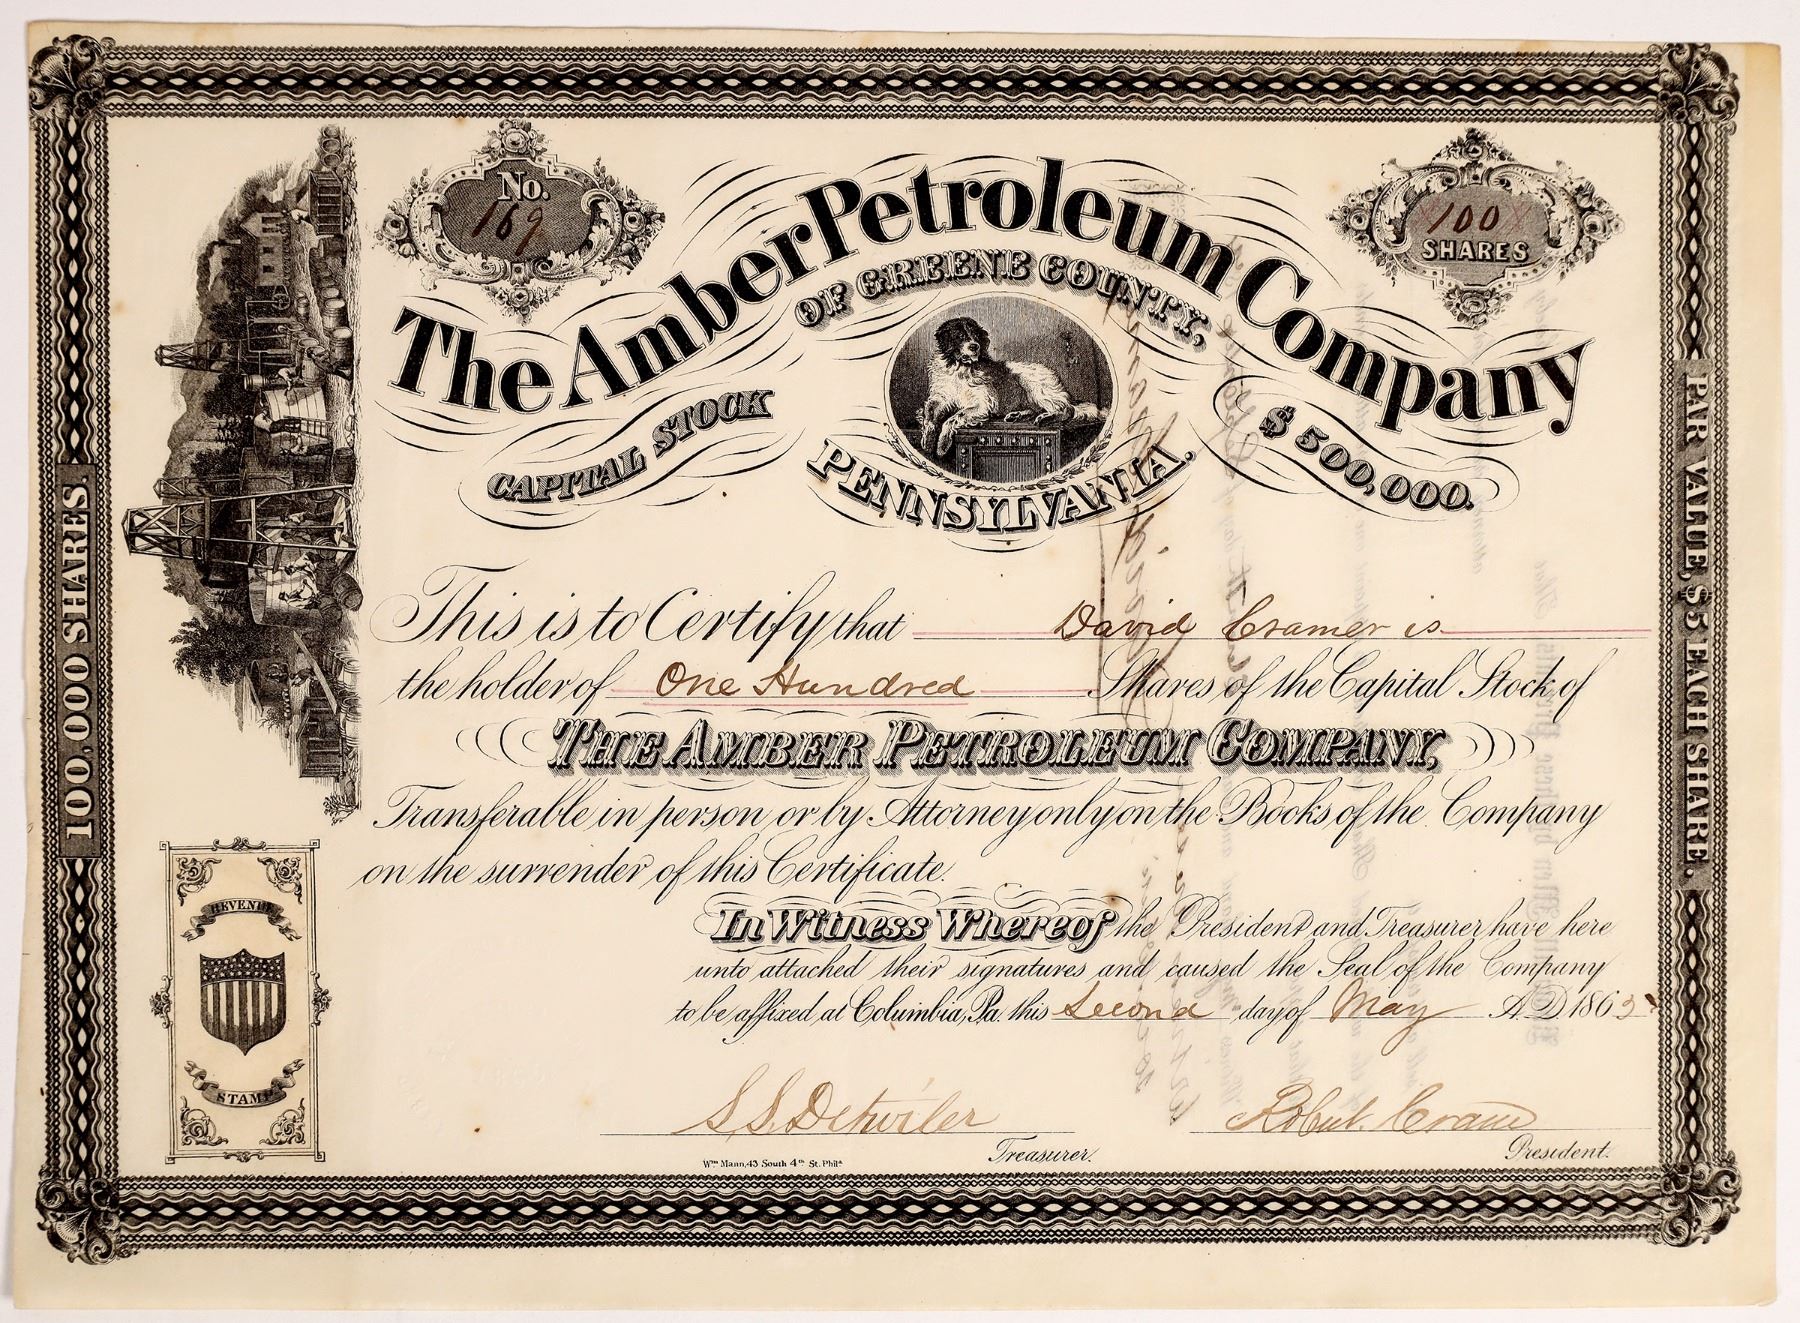 No.
169
100
SHARES
The Amber Petroleum Company
OF GREENE COUNTY,
PENNSYLVANIA.
CAPITAL STOCK
$500,000.
100,000 SHARES.
PAR VALUE, $5 EACH SHARE.
This is to Certify that David Cramer is
the holder of One Hundred Shares of the Capital Stock of
THE AMBER PETROLEUM COMPANY,
Transferable in person or by Attorney only on the Books of the Company
on the surrender of this Certificate.
In Witness Whereof the President and Treasurer have here
unto attached their signatures and caused the Seal of the Company
to be affixed, at Columbia, Pa. this Second day of May A.D. 1865
REVENUE
STAMP
S. S. Detwiler
Treasurer.
Robert Crane
President.
Wm Mann, 43 South 4th St. Phila